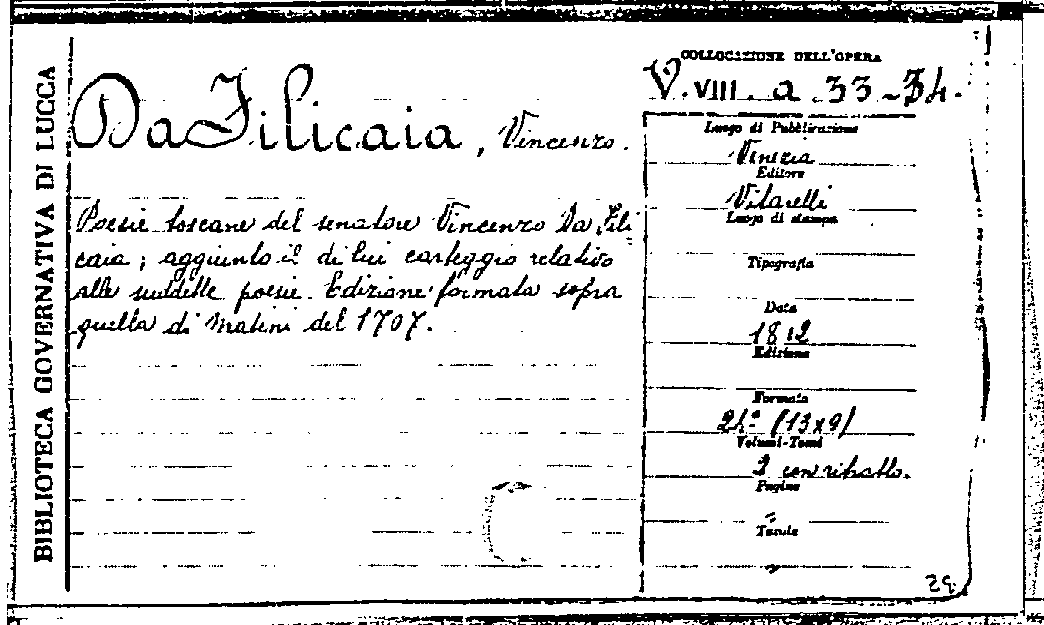 BIBLIOTECA GOVERNATIVA DI LUCCA
Da Filicaia, Vincenzo.
Poesie toscane del senatore Vincenzo Da Fili
caia; aggiunto il di lui carteggio relativo
alle suddette poesie. Edizione formata sopra
quella di Matini del 1707.
COLLOCAZIONE DELL'OPERA
V. VIII. a 33-34.
Luogo di Pubblicazione
Venezia
Editore
Vitarelli
Luogo di stampa
Tipografia
Data
1812
Edizione
Formato
24° (13x9)
Volumi-Tomi
2 con ritratto.
Pagine
Tavole
29.